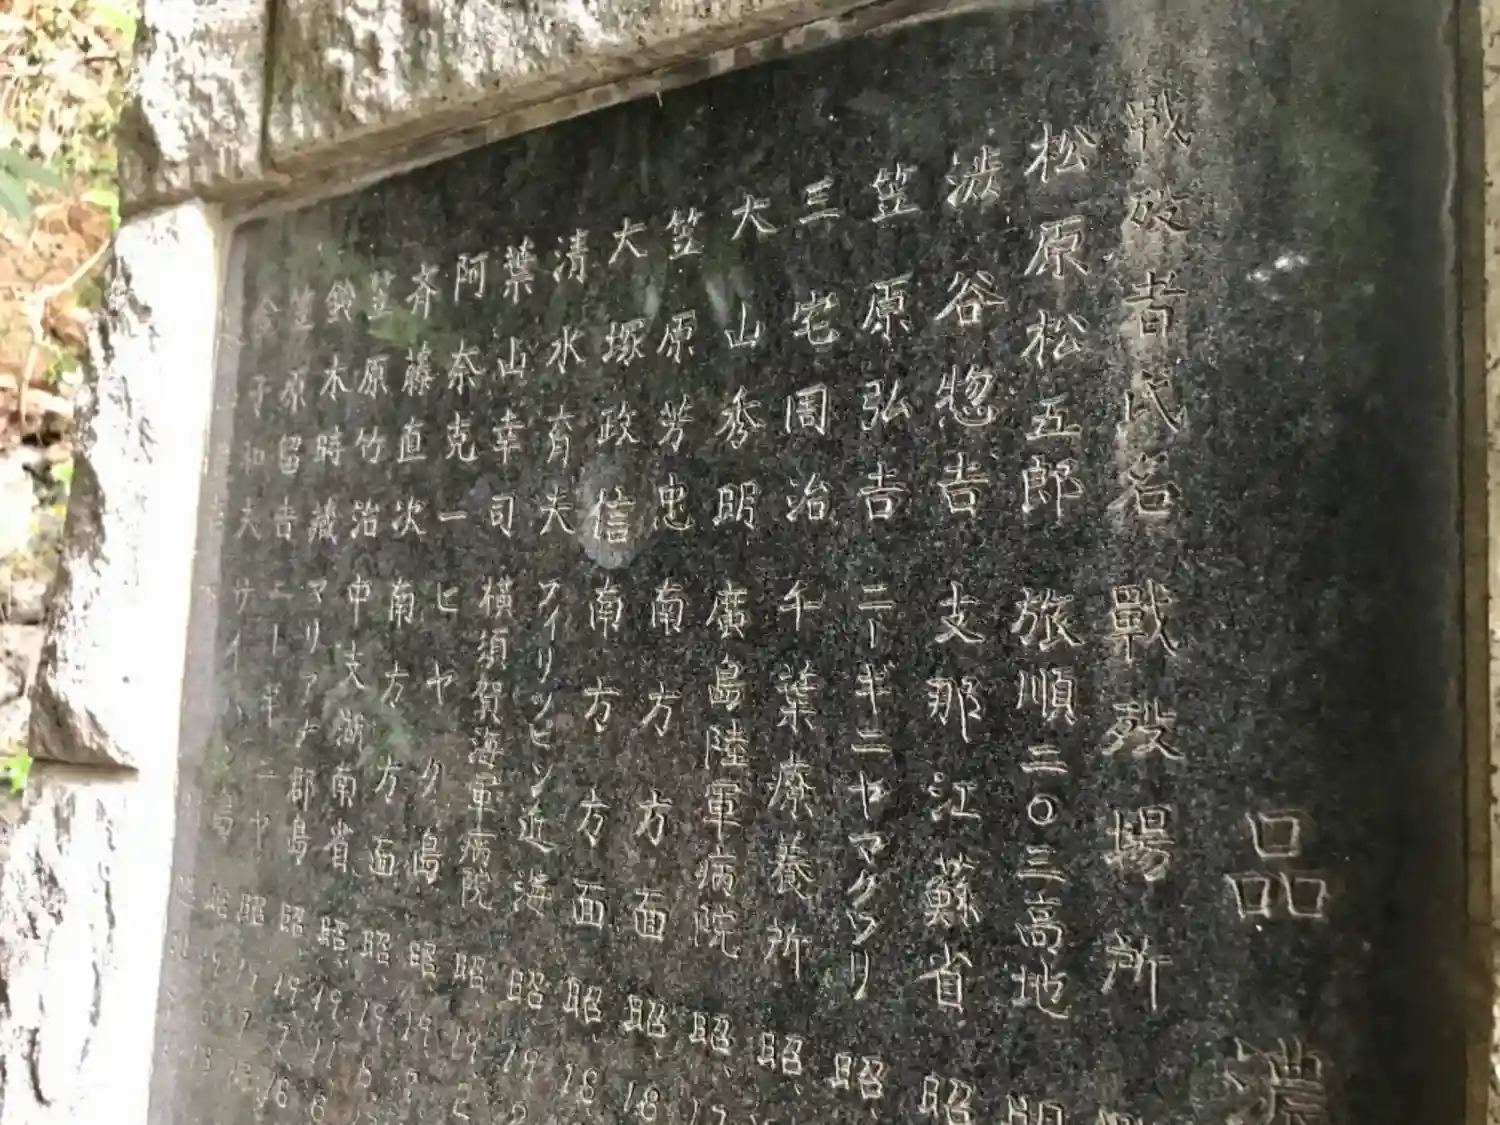 品濃
戰歿者氏名 戰歿場所
松原松五郎 旅順二〇三高地 明
渋谷惣吉 支那江蘇省 昭
笠原弘吉 ニーギニヤマクワリ 昭、
三宅周治 千葉療養所 昭、
大山秀明 廣島陸軍病院 昭、17
笠原芳忠 南方方面 昭、18
大塚政信 南方方面 昭、18
清水育夫 フィリッピン近海 昭、19
葉山幸司 横須賀海軍病院 昭、19 2
阿奈克一 ヒヤク島 昭、19
斉藤直次 南方方面 昭、19
笠原竹治 中支湖南省 昭、19 6
鈴木時蔵 マリアナ郡島 昭、19 11 6
笠原留吉 ニーギニヤ 昭、19 7 16
金子和夫 サイパン島 昭